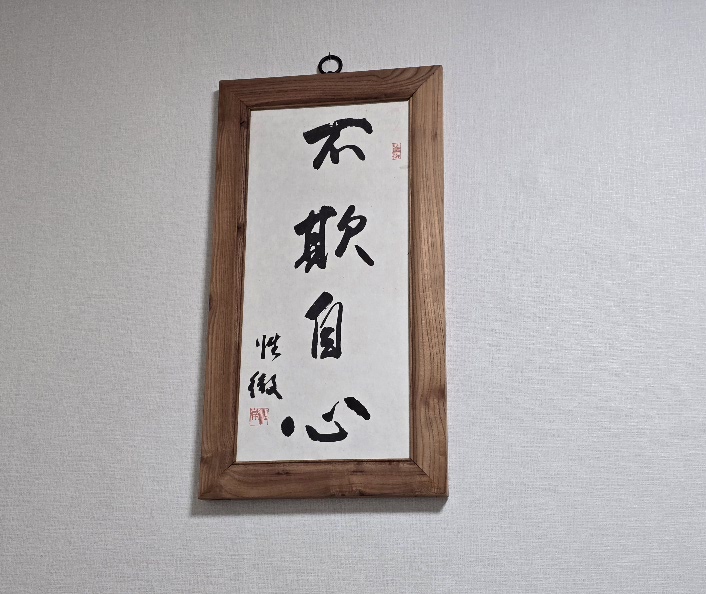 不欺自心
性徹